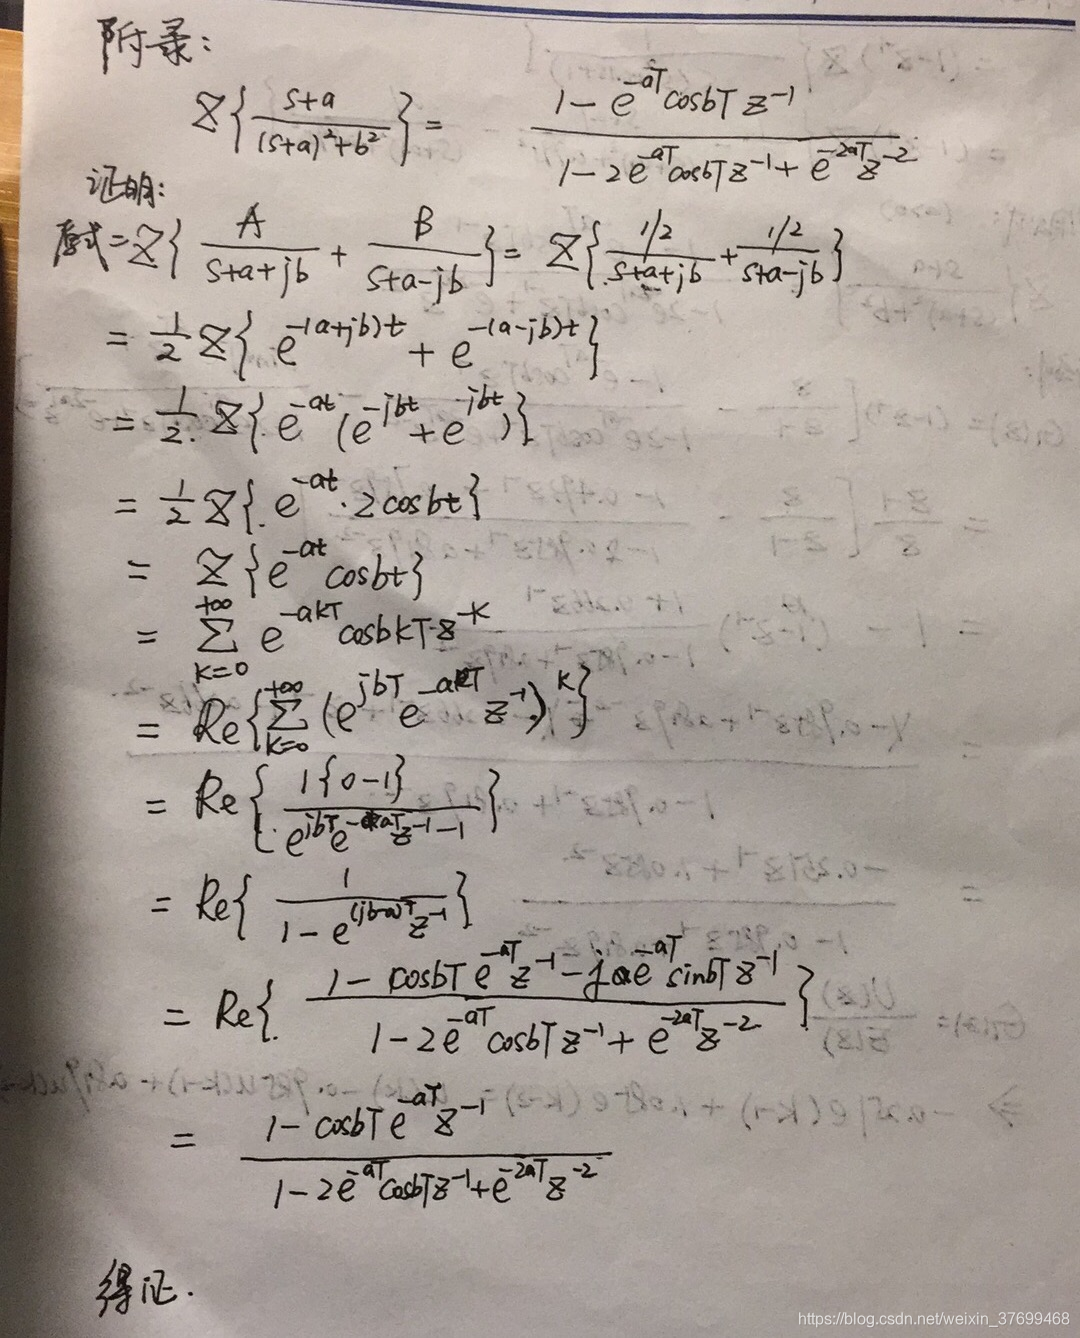 附录:
Z{ (s+a)/((s+a)²+b²) } = (1-e^{-aT}cosbT z^{-1})/(1-2e^{-aT}cosbTz^{-1}+e^{-2aT}z^{-2})
证明:
原式=Z{ A/(s+a+jb) + B/(s+a-jb) } = Z{ (1/2)/(s+a+jb) + (1/2)/(s+a-jb) }
= 1/2 Z{ e^{-(a+jb)t} + e^{-(a-jb)t} }
= 1/2 Z{ e^{-at} (e^{-jbt}+e^{jbt}) }
= 1/2 Z{ e^{-at}·2cosbt }
= Z{e^{-at}cosbt}
= Σ_{k=0}^{+∞} e^{-akT}cosbkT·z^{-k}
= Re{ Σ_{k=0}^{+∞} (e^{jbT} e^{-aT} z^{-1})^k }
= Re{ 1{0-1}/(e^{jbT}e^{-aT}z^{-1}-1) }
= Re{ 1/(1-e^{(jb-a)T}z^{-1}) }
= Re{ (1-cosbTe^{-aT}z^{-1}-je^{-aT}sinbTz^{-1})/(1-2e^{-aT}cosbTz^{-1}+e^{-2aT}z^{-2}) }
= (1-cosbTe^{-aT}z^{-1})/(1-2e^{-aT}cosbTz^{-1}+e^{-2aT}z^{-2})
得证.
https://blog.csdn.net/weixin_37699468